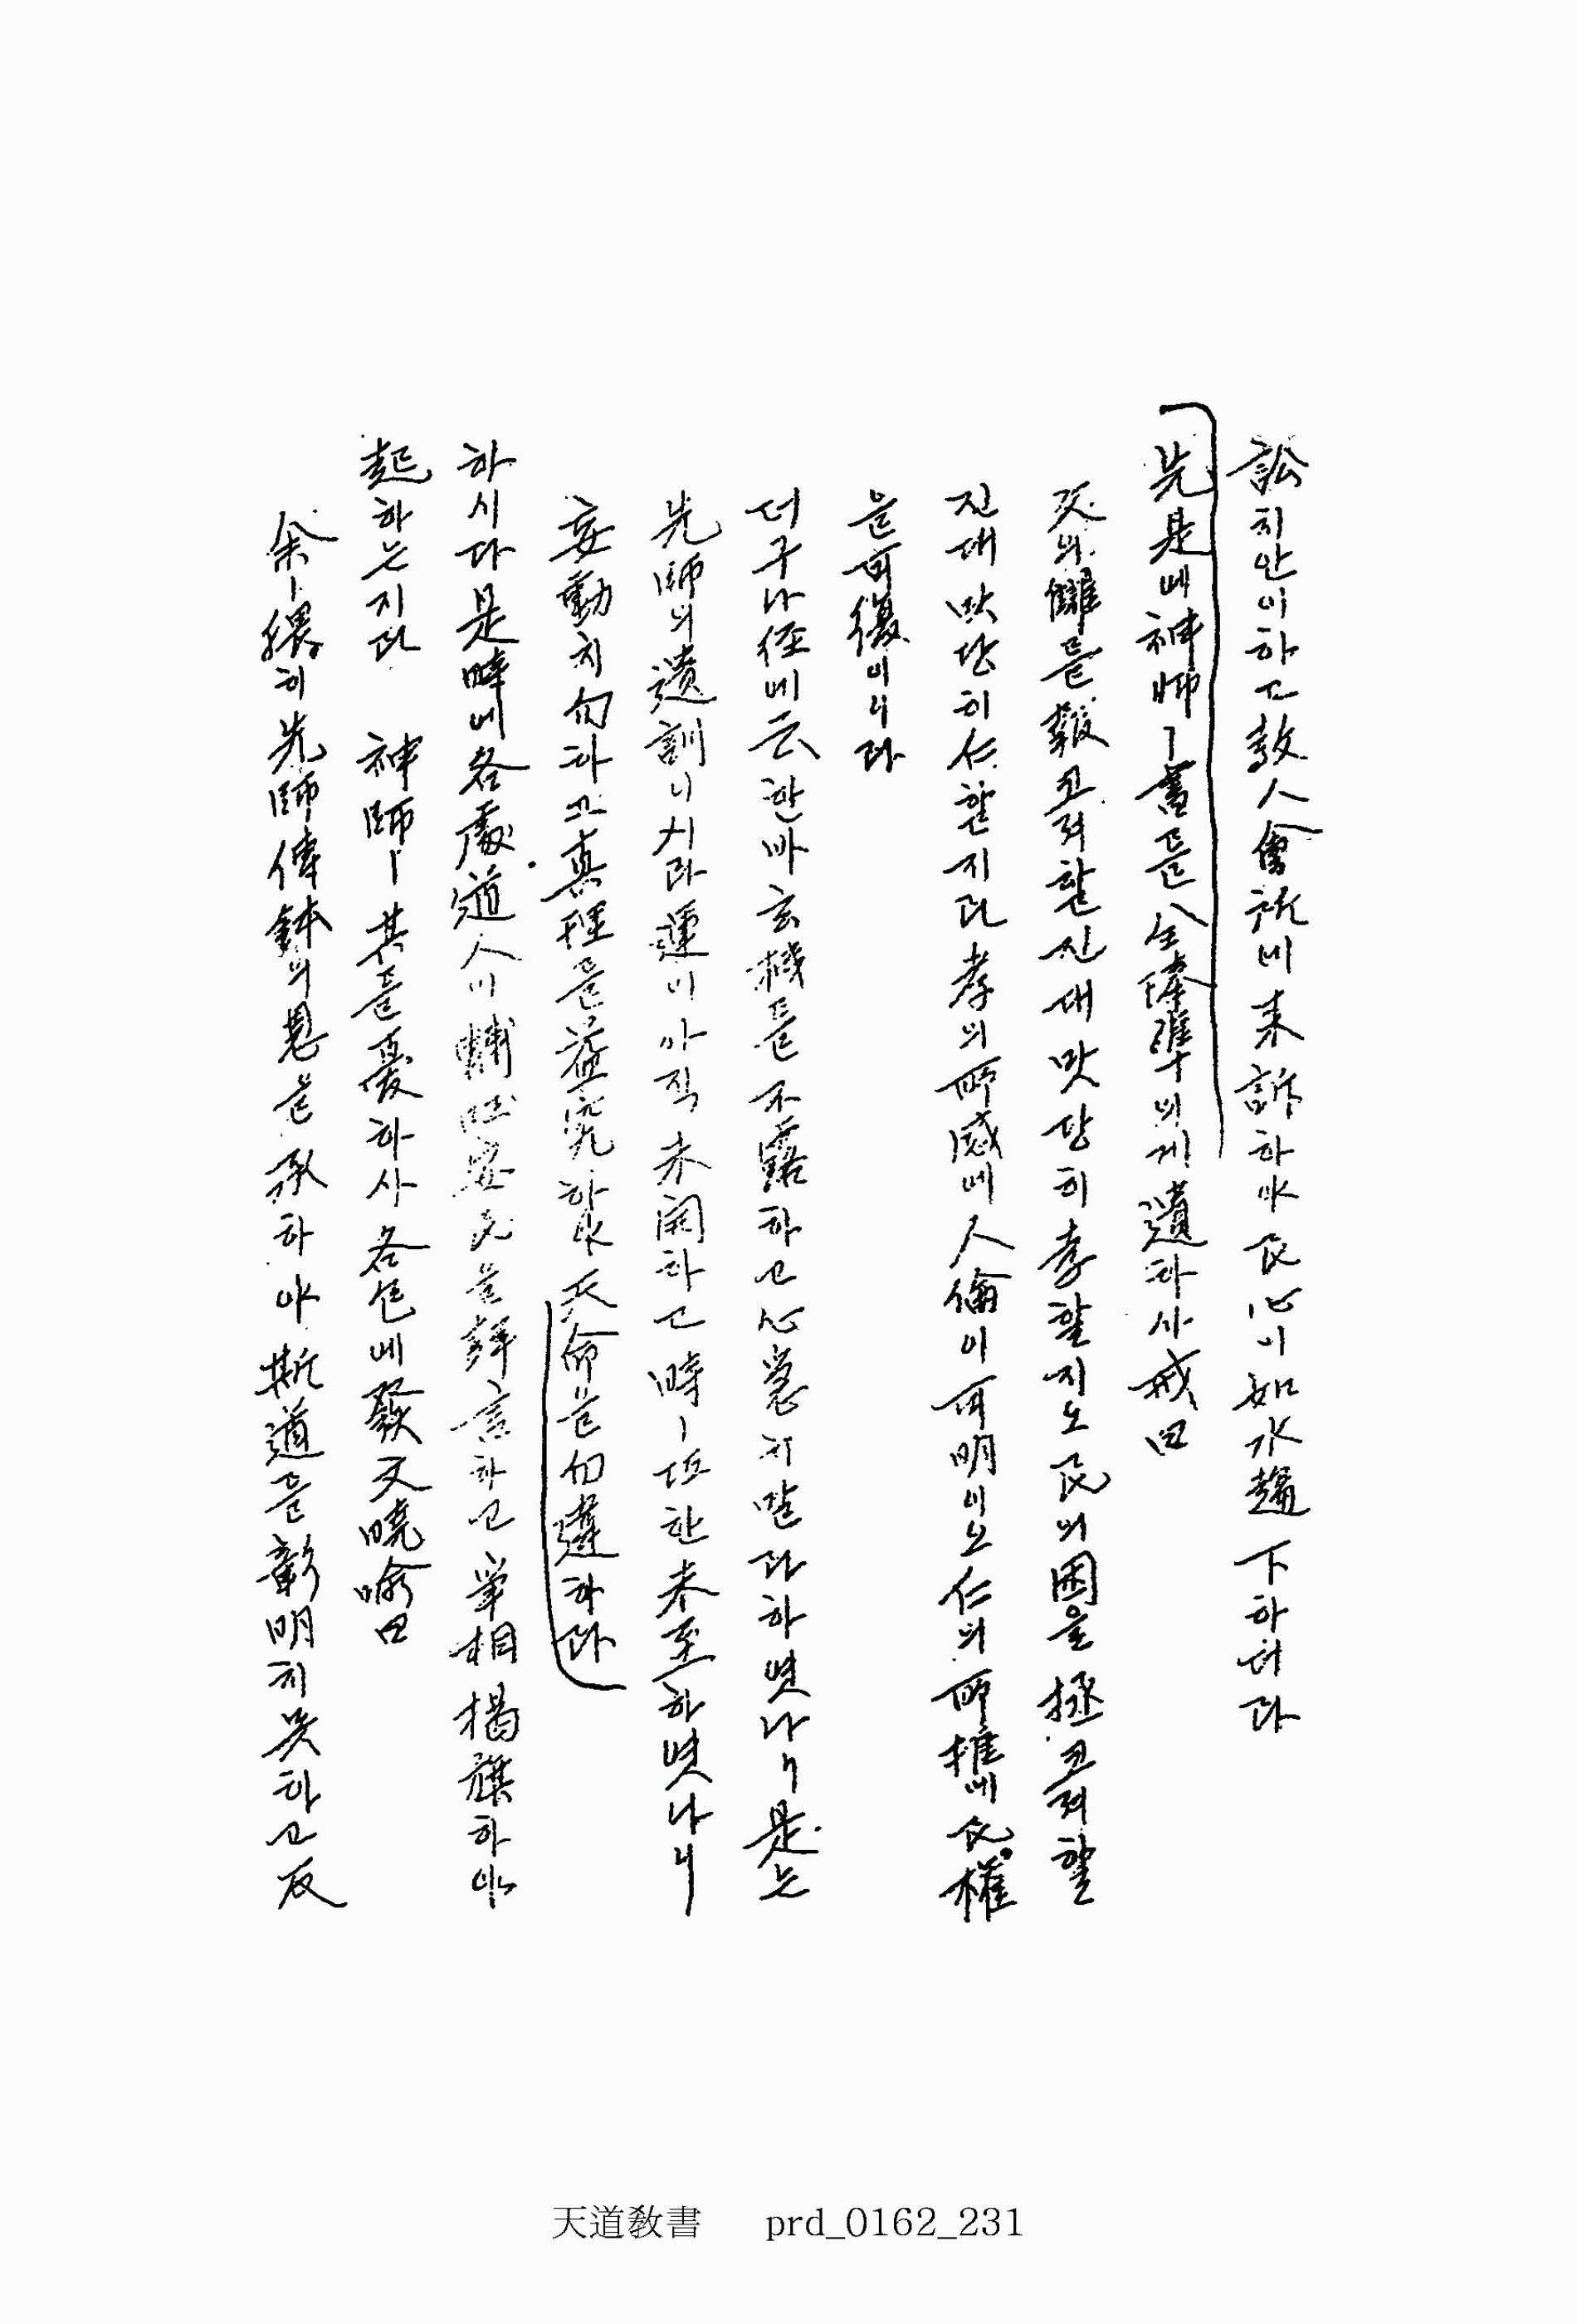 訟치안이하고敎人會所에來訴하야民心이如水趨下하더라
先是에神師ㅣ書를全琫準의게遺하사戒曰
父의讎를報코져할진대맛당히孝할지오民의困을拯코져할
진대맛당히仁할지라孝의所感에人倫이可明이오仁의所推에民權
을可復이니라
더구나經에云한바玄機를不露하고心急치말라하엿나니是는
先師의遺訓이시라運이아직未開하고時ㅣ또한未至하엿나니
妄動치勿하고眞理를益究하야天命을勿違하라
하시다是時에各處道人이輔國安民을聲言하고爭相揭旗하야
起하는지라 神師ㅣ其를憂하사各包에發文曉喩曰
余ㅣ猥히先師傳鉢의恩을承하야斯道를彰明치못하고反
天道敎書 prd_0162_231